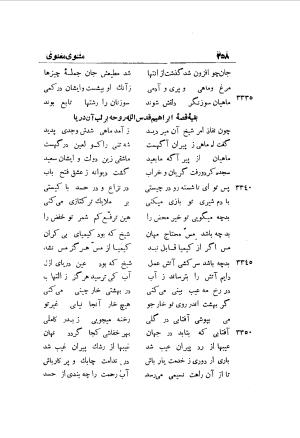 ۳۵۸ مثنوی معنوی
جان چو افزون شد گذشت از انتها شد مطیعش جان جملهٔ چیزها
مرغ و ماهی و پری و آدمی زآنک او بیشست و ایشان در کمی
۳۳۳۵ ماهیان سوزنگر دلقش شوند سوزنان را رشتها تابع بوند
بقیهٔ قصهٔ ابراهیم قدس الله روحه بر لب آن دریا
چون نفاذ امر شیخ آن میر دید زآمد ماهی شدش وجدی پدید
گفت اه ماهی ز پیران آگهست شه تنی را کو لعین درگهست
ماهیان از پیر آگه ما بعید ما شقی زین دولت و ایشان سعید
سجده کرد و رفت گریان و خراب گشت دیوانه ز عشق فتح باب
۳۳۴۰ پس تو ای ناشسته رو در چیستی در نزاع و در حسد با کیستی
با دم شیری تو بازی می‌کنی بر ملایک ترک‌تازی می‌کنی
بد چه می‌گویی تو خیر محض را هین ترفع کم شمر تو خفض را
بد چه باشد مس محتاج مهان شیخ که بود کیمیای بی‌کران
مس اگر از کیمیا قابل نبد کیمیا از مس هرگز مس نشد
۳۳۴۵ بد چه باشد سرکشی آتش عمل شیخ که بود عین دریای ازل
دایم آتش را بترسانند ز آب آب کی ترسید هرگز ز التهاب
در رخ مه عیب بینی می‌کنی در بهشتی خارچینی می‌کنی
گر بهشت اندر روی تو خارجو هیچ خار آنجا نیابی غیر تو
می بپوشی آفتابی در گلی رخنه می‌جویی ز بدر کاملی
۳۳۵۰ آفتابی که بتابد در جهان بهر خفاشی کجا گردد نهان
عیبها از رد پیران عیب شد غیبها از رشک پیران غیب شد
باری ار دوری ز خدمت یار باش در ندامت چابک و بر کار باش
تا از آن راهت نسیمی می‌رسد آب رحمت را چه بندی از حسد